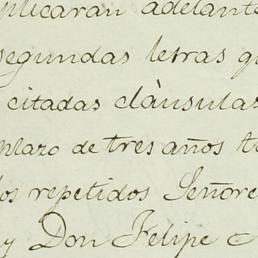 plicaran adelant
segundas letras q
citadas clàusulas
plazo de tres años t
los repetidos Señore
y Don Felipe